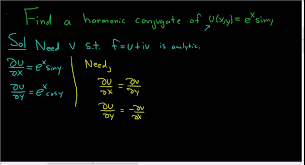 Find a harmonic conjugate of u(x,y) = e^x sin y
Sol Need v s.t. f = u + iv is analytic.
∂u/∂x = e^x sin y
∂u/∂y = e^x cos y
Need,
∂u/∂x = ∂v/∂y
∂u/∂y = -∂v/∂x